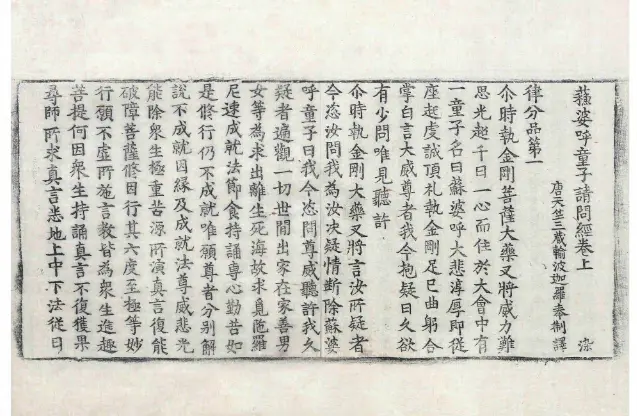 蘓婆呼童子請問經卷上　染
唐天竺三藏輸波迦羅奉制譯
律分品第一
尒時執金剛菩薩大藥叉將威力難
思光超千日一心而住於大會中有
一童子名曰蘇婆呼大悲淳厚即從
座起虔誠頂礼執金剛足已曲躬合
掌白言大威尊者我今抱疑日久欲
有少問唯見聽許
尒時執金剛大藥叉將言汝所疑者
今恣汝問我為汝决疑情斷除蘇婆
呼童子曰我今恣問尊威聽許我久
疑者適觀一切世間出家在家善男
女等為求出離生死海故求覓陁羅
尼速成就法節食持誦專心勤苦如
是修行仍不成就唯願尊者分別解
說不成就因緣及成就法尊威悲光
能除衆生極重苦源所演真言復能
破障菩薩修因行其六度至極等妙
行願不虛所施言教皆為衆生進趣
菩提何因衆生持誦真言不復獲果
尋師所求真言悉地上中下法從日